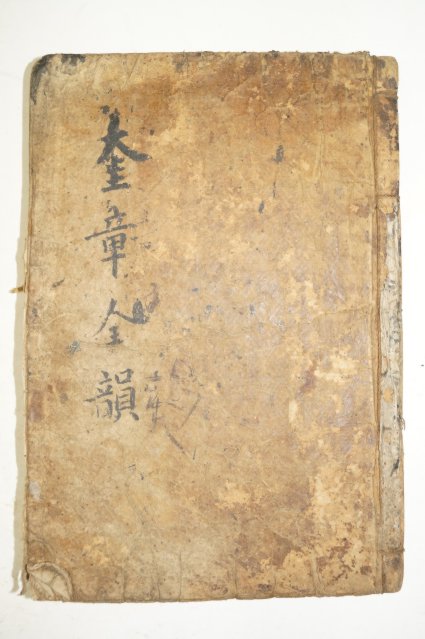 奎章全韻